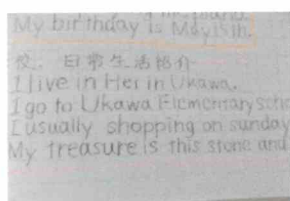 My birthday is May 15th.
日常生活紹介
I live in in Ukawa.
I go to Ukawa Elementary scho
I usually shopping on sunday
My treasure is this stone and